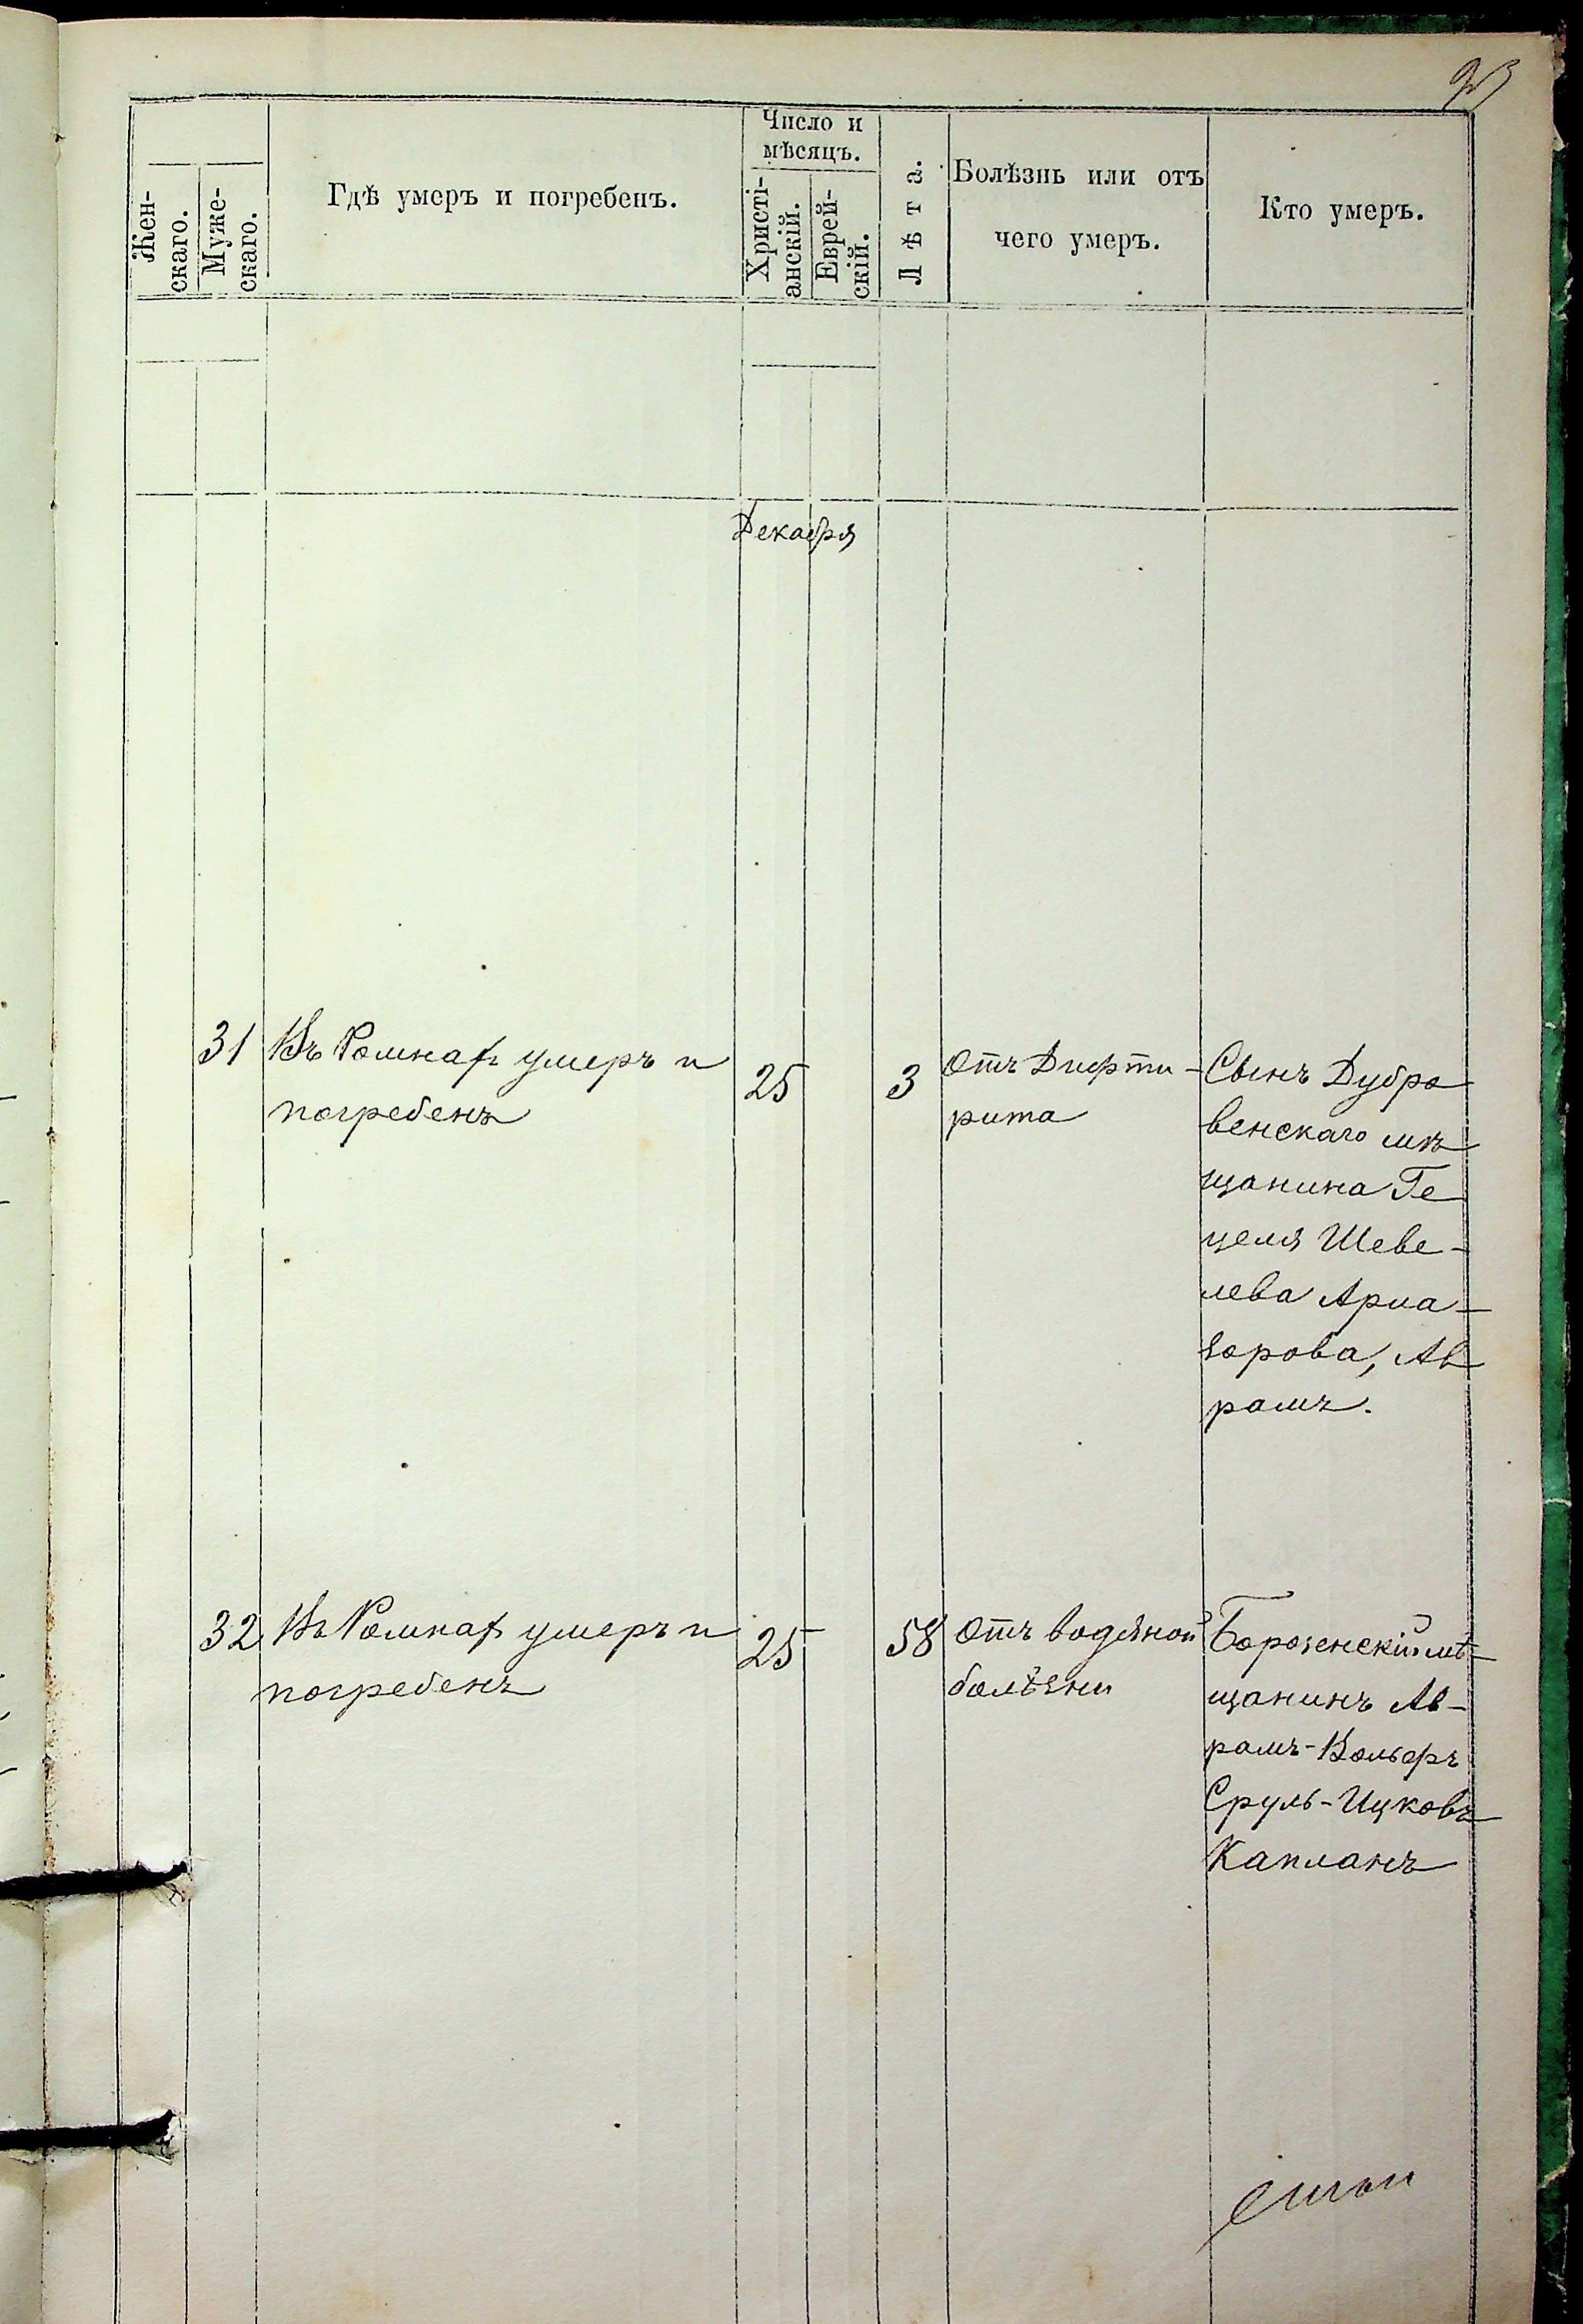 Жен-
скаго.
Муже-
скаго.
Гдѣ умеръ и погребенъ.
Число и
мѣсяцъ.
Христі-
анскій.
Еврей-
скій.
Лѣта.
Болѣзнь или отъ
чего умеръ.
Кто умеръ.
Декабря
31 Въ Ромнахъ умеръ и
погребенъ
25
3
Отъ Дифти-
рита
Сынъ Дубро
венскаго мѣ
щанина Ге
целя Шеве-
лева
рова, Ав
рамъ.
32 Въ Ромнахъ умеръ и
погребенъ
25
58
Отъ водяной
болѣзни
Борзенскій мѣ-
щанинъ Ав-
рамъ-Вольфъ
Сруль-Ицковъ
Капланъ